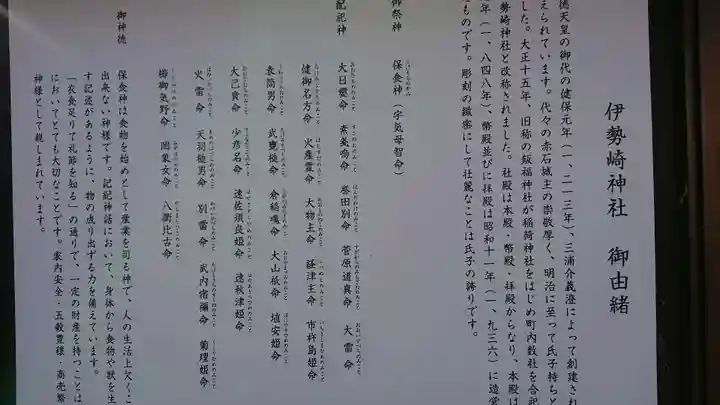 伊勢崎神社 御由緒
徳天皇の御代の健保元年(一、二一三年)、三浦介義澄によって創建され
えられています。代々の赤石城主の崇敬厚く、明治に至って氏子持ちと
した。大正十五年、旧称の飯福神社が稲荷神社をはじめ町内数社を合祀
勢崎神社と改称されました。社殿は本殿・幣殿・拝殿からなり、本殿は
年(一、八四八年)、幣殿並びに拝殿は昭和十一年(一、九三六)に造営
ものです。彫刻の緻密にして壮麗なことは氏子の誇りです。
御祭神 保食神(宇気母智命)
配祀神 大日孁命 素戔嗚命 誉田別命 菅原道真命 大雷命
健御名方命 火産霊命 大物主命 経津主命 市杵島姫命
表筒男命 武甕槌命 倉稲魂命 大山祇命 埴安姫命
大己貴命 少彦名命 速佐須良姫命 速秋津姫命
火雷命 天羽槌男命 別雷命 武内宿禰命 菊理姫命
櫛御気野命 罔象女命 八衢比古命
御神徳 保食神は食物を始めとして産業を司る神で、人の生活上欠くこ
出来ない神様です。記紀神話において、身体から食物や獣を生
す記述があるように、物の成り出ずる力を備えています。
「衣食足りて礼節を知る」の通りで、一定の財産を持つことは
においてとても大切なことです。家内安全・五穀豊穣・商売繁
神様として親しまれています。